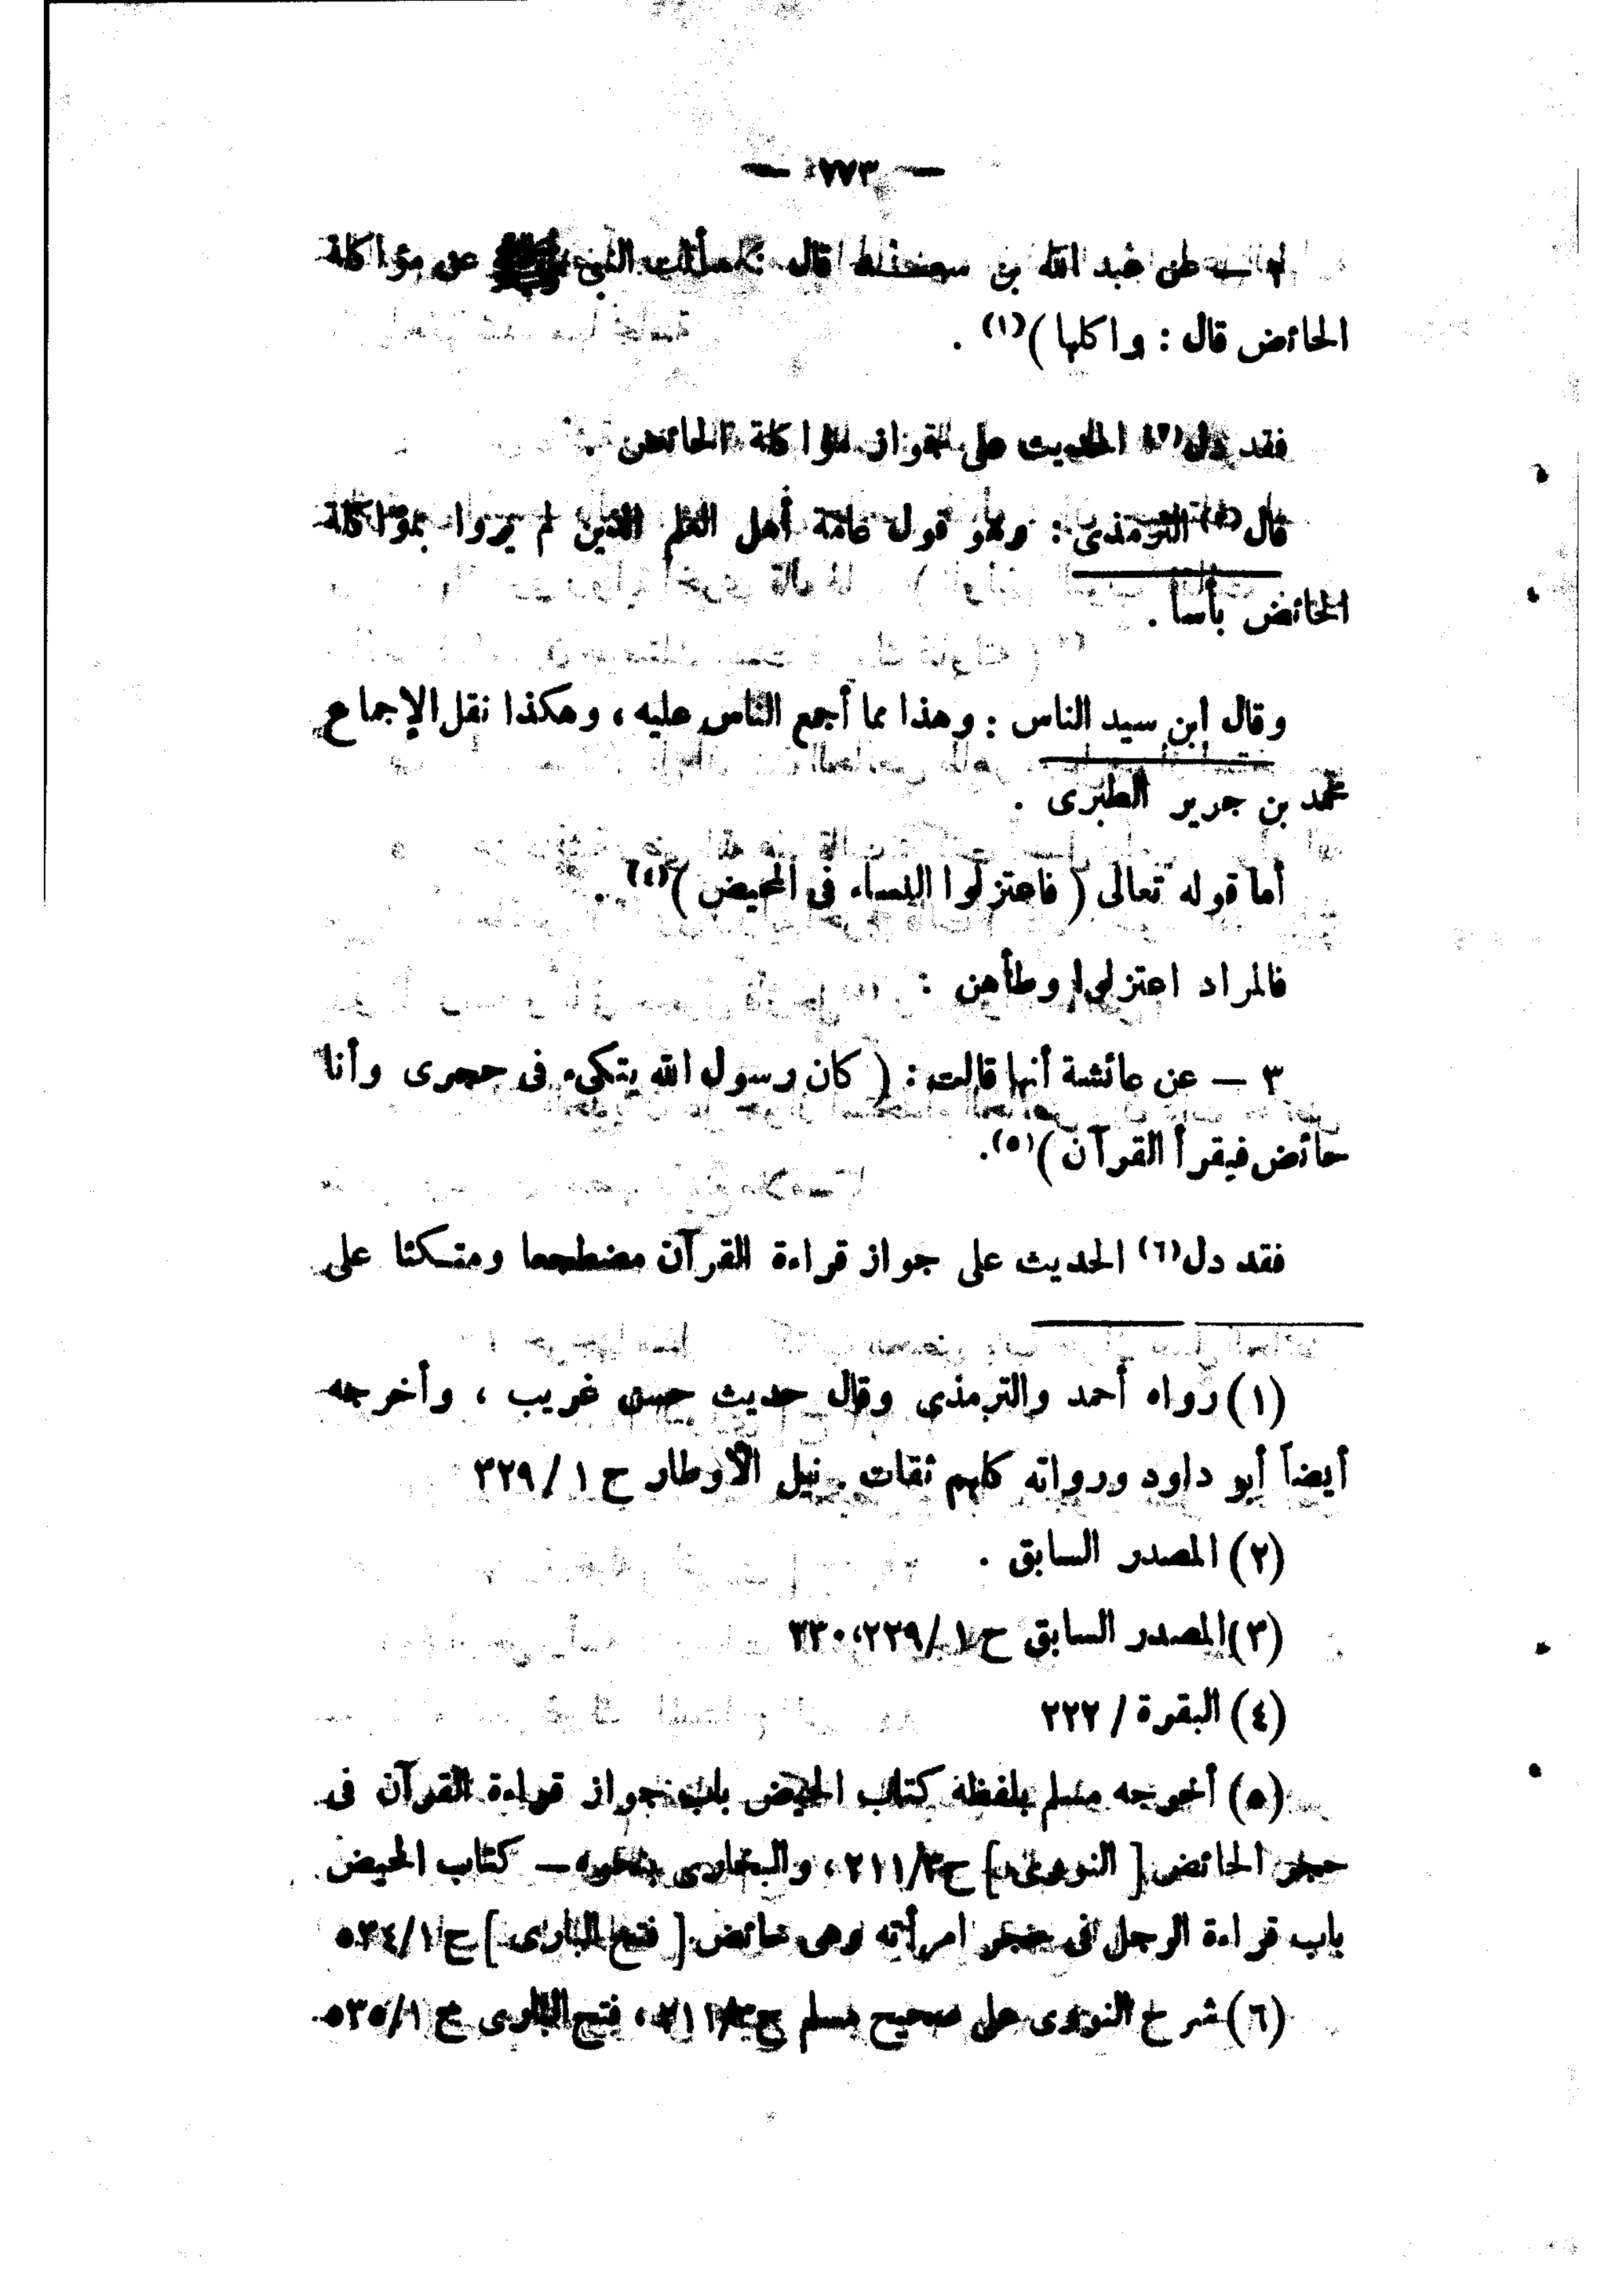 — ٧٧٣ —
٢ — عن عبد الله بن سعد قال : سألت النبى ﷺ عن مؤاكلة
الحائض قال : واكلها )(١) .
فقد دل(٢) الحديث على جواز مؤاكلة الحائض .
قال(٣) الترمذى : وهو قول عامة أهل العلم الذين لم يروا بمؤاكلة
الحائض بأسا .
وقال ابن سيد الناس : وهذا مما أجمع الناس عليه ، وهكذا نقل الإجماع
محمد بن جرير الطبرى .
أما قوله تعالى ( فاعتزلوا النساء فى المحيض )(٤) .
فالمراد اعتزلوا وطأهن :
٣ — عن عائشة أنها قالت : ( كان رسول الله يتكىء فى حجرى وأنا
حائض فيقرأ القرآن )(٥).
فقد دل(٦) الحديث على جواز قراءة القرآن مضطجعا ومتكئا على
(١) رواه أحمد والترمذى وقال حديث حسن غريب ، وأخرجه
أيضاً أبو داود ورواته كلهم ثقات . نيل الأوطار ح ١ / ٣٢٩
(٢) المصدر السابق .
(٣) المصدر السابق ح ١ /٢٢٩، ٣٣٠
(٤) البقرة / ٢٢٢
(٥) أخرجه مسلم بلفظه كتاب الحيض باب جواز قراءة القرآن فى
حجر الحائض [ النووى ] ح٢١١/٣ ، والبخارى بنحوه — كتاب الحيض
باب قراءة الرجل فى حجر امرأته وهى حائض [ فتح البارى ] ح ٥٣٤/١
(٦) شرح النووى على صحيح مسلم ح٢١١/٣ ، فتح البارى ح ٥٣٥/١